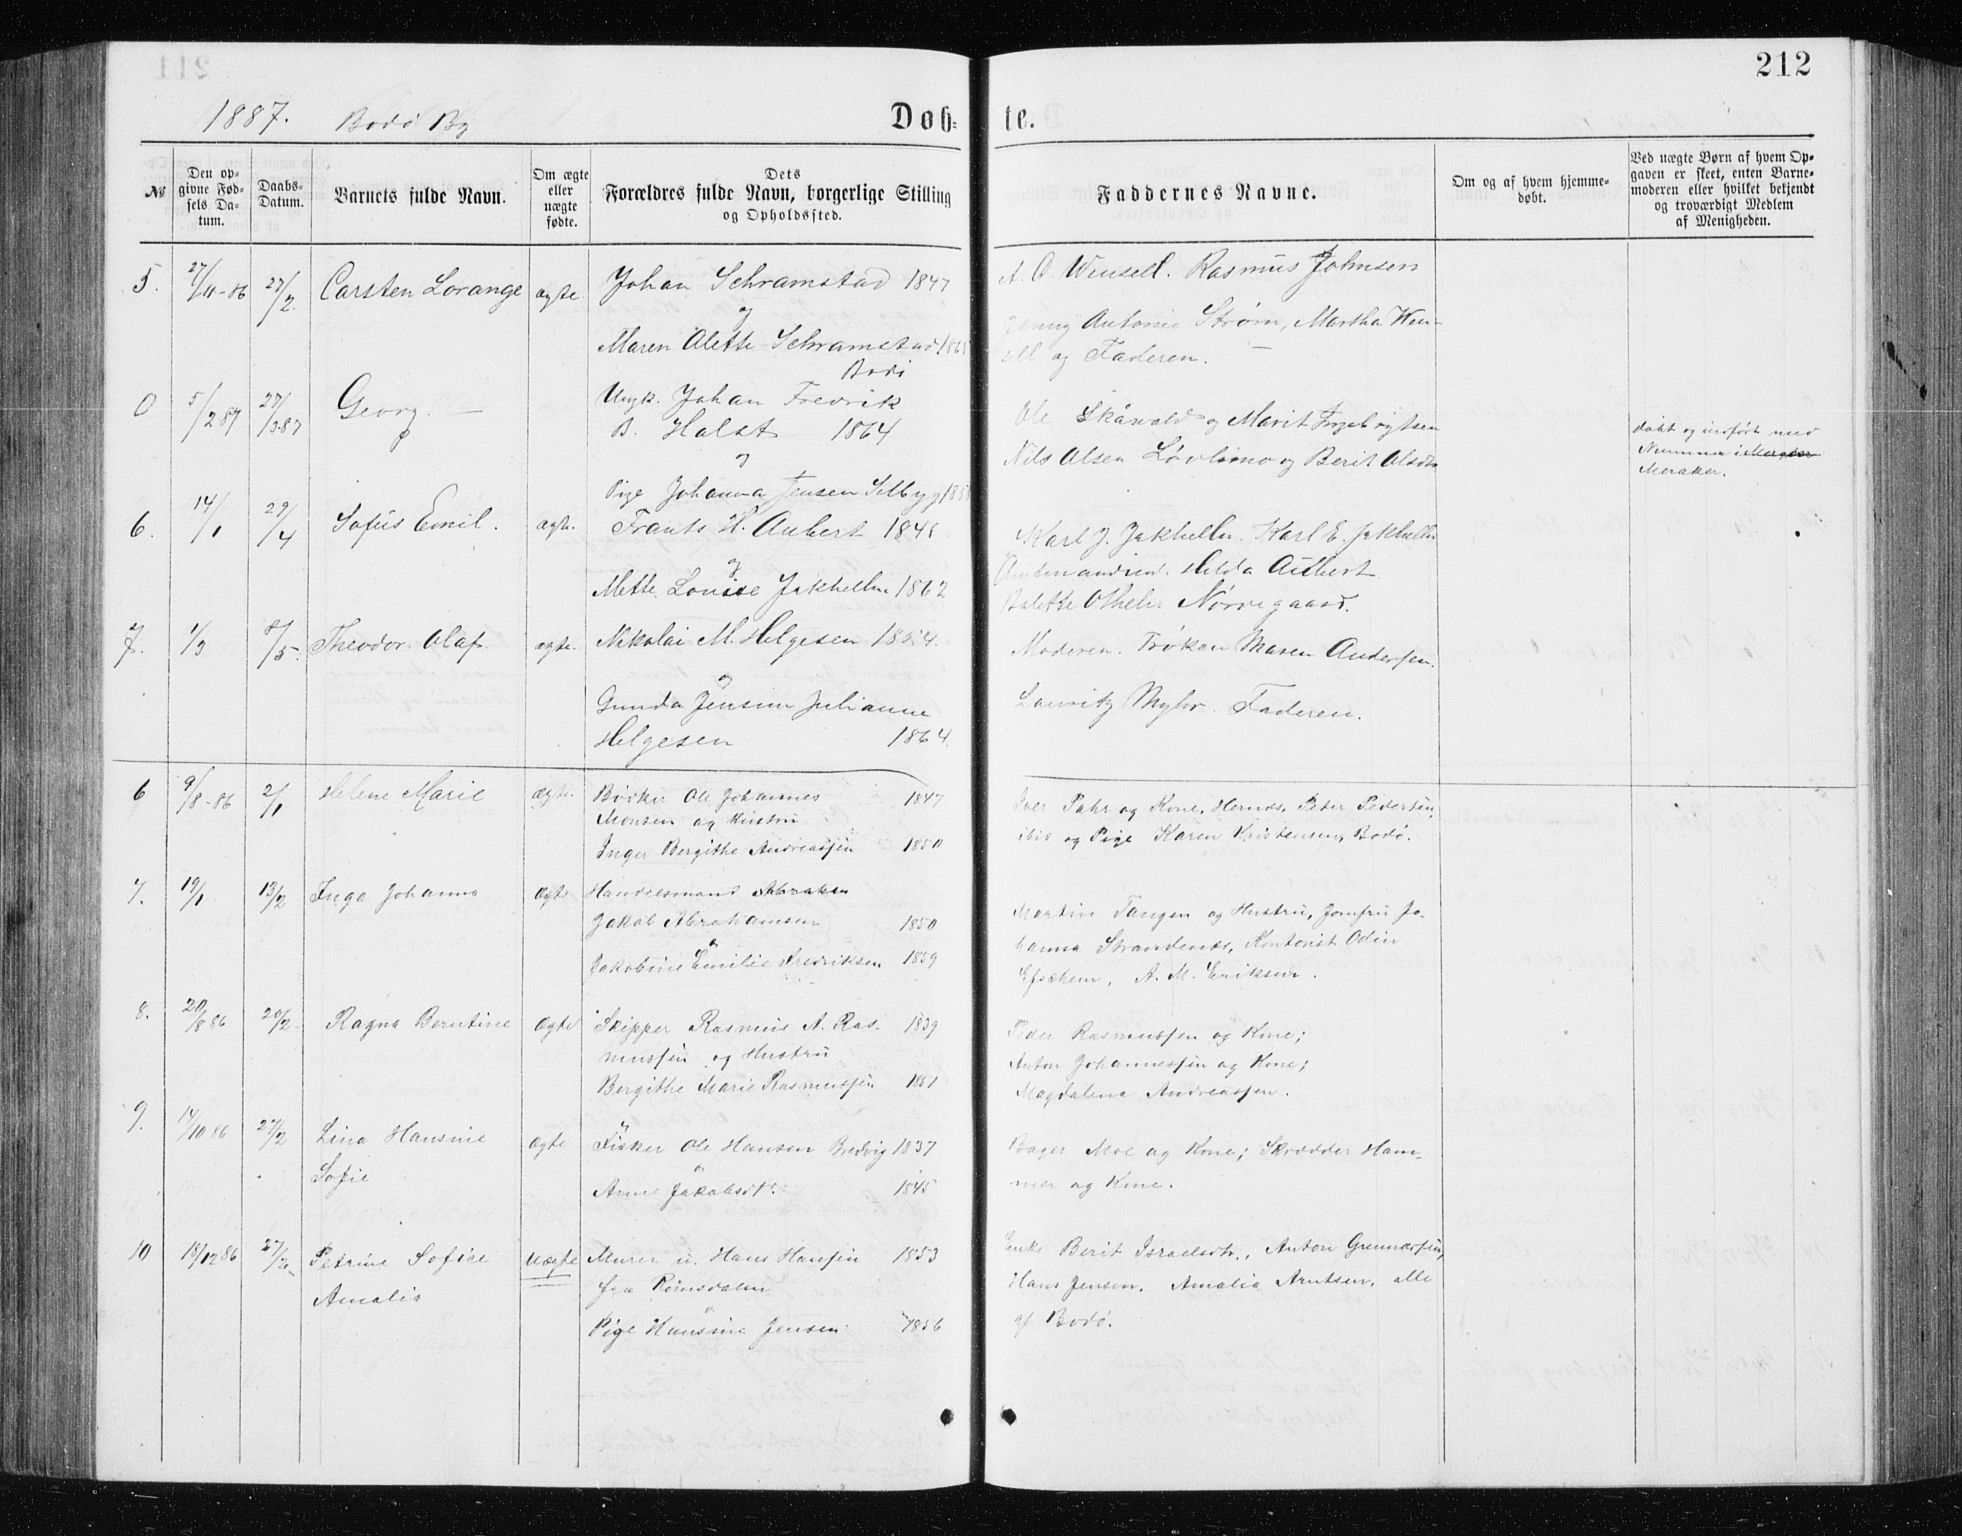 212
1887. Bodö By
Döb=
te.
№
Den op=
givne Fød=
sels Da=
tum.
Daabs=
Datum.
Barnets fulde Navn.
Om ægte
eller
uægte
fødte.
Dets
Forældres fulde Navn, borgerlige Stilling
og Opholdssted.
Faddernes Navne.
Om og af hvem hjemme=
døbt.
Ved uægte Børn af hvem Op=
gaven er skeet, enten Barne=
moderen eller hvilket bekjendt
og troværdigt Medlem
af Menigheden.
5. 27/11-86 27/2. Carsten Lorange ægte Johan Schramstad 1847
og
Maren Olette Schramstad 1865
Bodö
A. O. Wensell. Rasmus Johnsen
Antonie Strøm, Martha Wen-
sell og Faderen. —
0 5/2 87 27/3 87 Georg. — Ungk. Johan Fredrik
B. Holst 1864
og
Pige Johanna Jensen Selbyg 1858
Ole Skåvold og Marit Ingebrigtsen
Nils Olsen Løvlimo og Berit Olsdtr
døbt og indført med
Nummer i
Meraker.
6. 14/1 29/4 Sofus Emil. ægte. Frants H. Aubert 1848
og
Mette Louise Jakhelln 1862
Karl J. Jakhelln. Karl E. Jakhelln
Hilda Aubert
Nørregaard.
7. 1/3 8/5. Theodor Olaf ægte. Nikolai M. Helgesen 1854.
og
Gunda Jensine Julianne
Helgesen 1864.
Moderen. Frøken Maren Andersen.
Lauritz Myhr. Faderen.
6 9/8-86 2/1 Helene Marie ægte. Bødker Ole Johannes 1847
Monsen og Hustru
Inger Bergithe Andreassen 1850
Iver Pahr og Kone, Hernæs, Peter Pedersen,
ibid og Pige Karen Kristensen, Bodö.
7. 19/1 13/2 Inga Johanna ægte Handelsmand
Jakob Abrahamsen 1850
Jakobine Emilie Fredriksen 1859
Martin Tangen og Hustru, Jomfru Jo-
hanna Strandenæs, Kontorist Odin
A. M. Eriksen.
8. 20/8 86 20/2 Ragna Berntine ægte Skipper Rasmus A. Ras- 1839
mussen og Hustru
Bergithe Marie Rasmussen 1851
Peder Rasmussen og Kone;
Anton Johannessen og Kone;
Magdalena Andreassen.
9. 14/10 86 27/2 Lina Hansine ægte Fisker Ole Hansen Bredvig 1837
Sofie
Anne Jakobsdt. 1845
Bager Moe og Kone; Skrædder Ham-
mer og Kone.
10 18/12 86 27/2 Petrine Sofie uægte Murer u. Hans Hansen 1853
Amalia
fra Romsdalen
Pige Hansine Jensen 1856
Enke Berit Israelsdtr., Anton Gunnarsen,
Hans Jensen. Amalia Arntsen, alle
af Bodö.